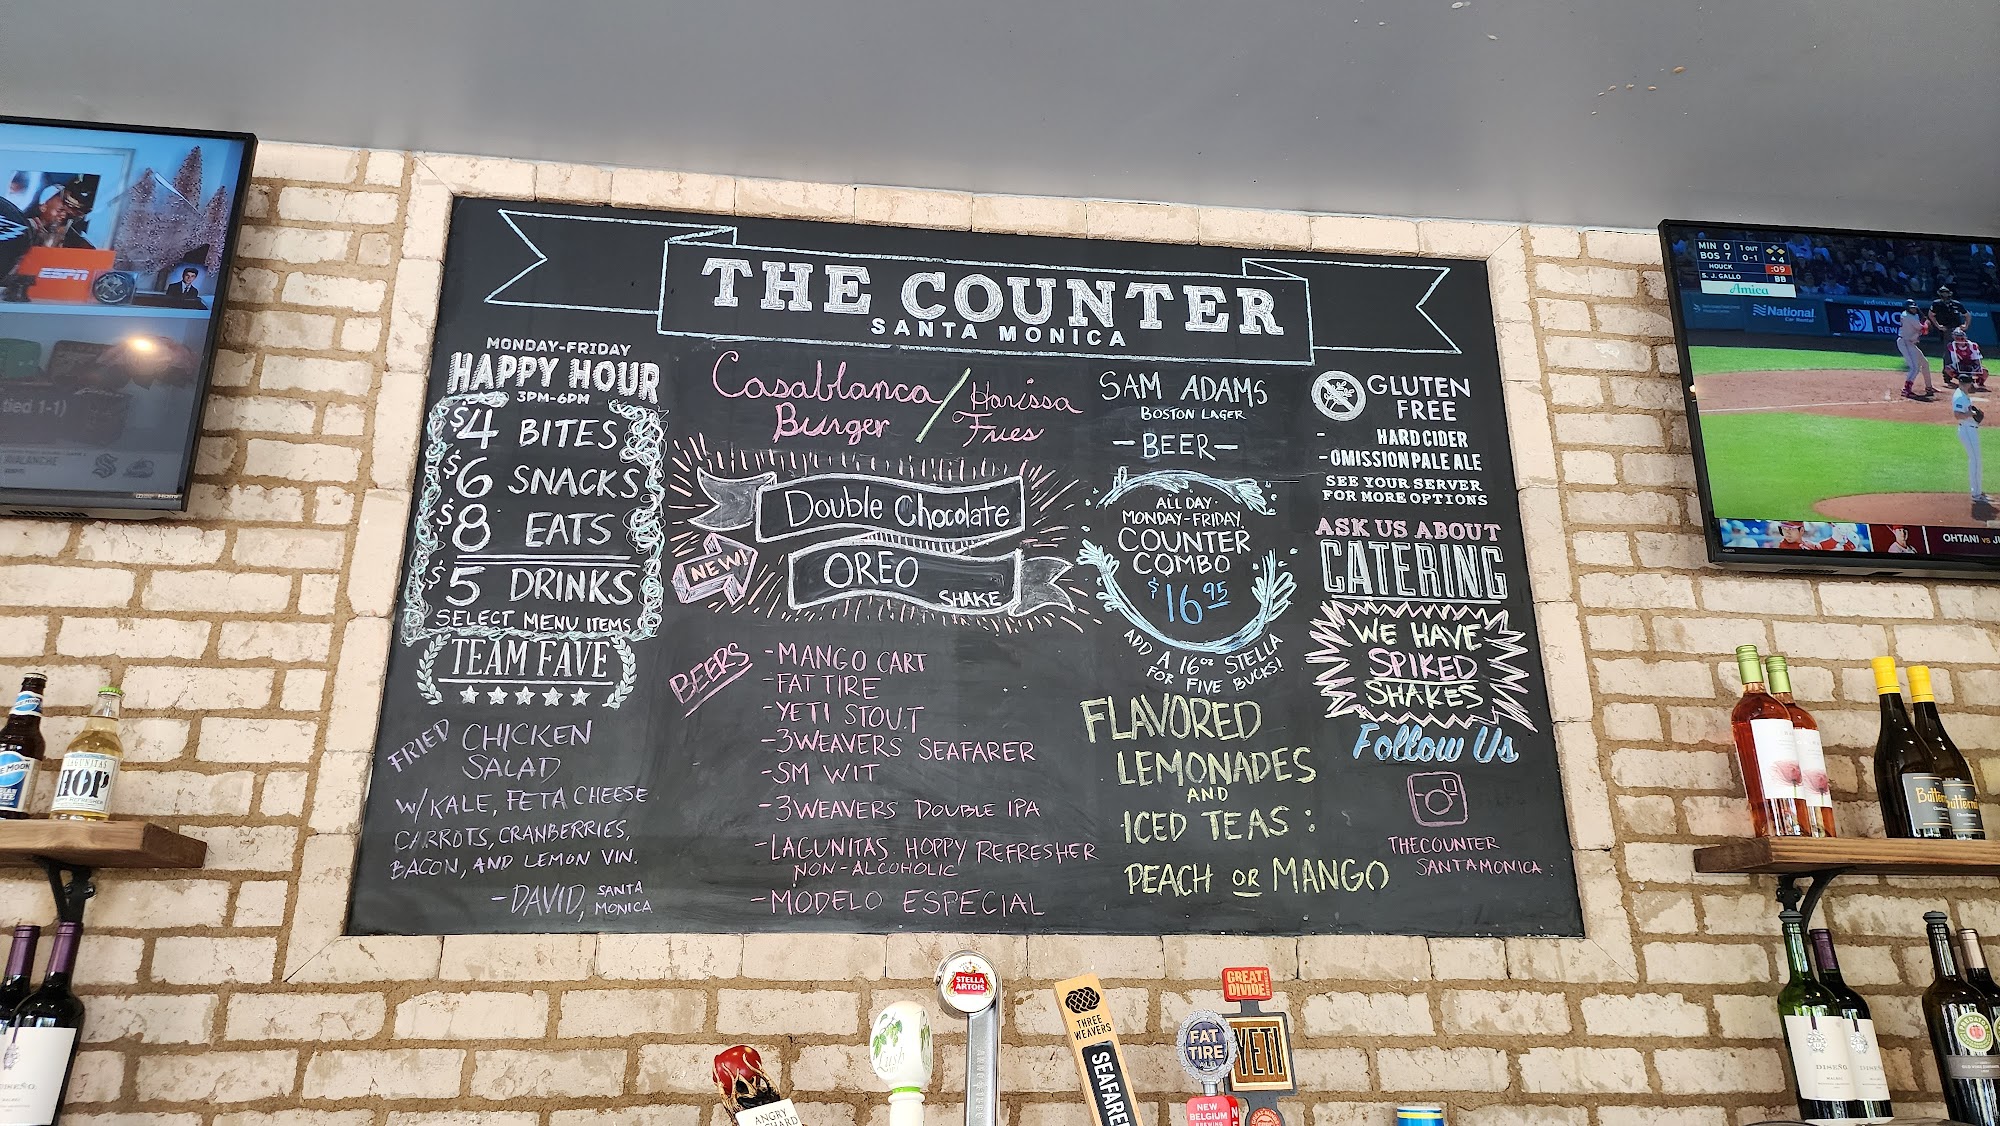 THE COUNTER
SANTA MONICA
MONDAY-FRIDAY
HAPPY HOUR
3PM-6PM
$4 BITES
$6 SNACKS
$8 EATS
$5 DRINKS
SELECT MENU ITEMS
TEAM FAVE
FRIED CHICKEN
SALAD
W/ KALE, FETA CHEESE
CARROTS, CRANBERRIES,
BACON, AND LEMON VIN.
-DAVID, SANTA
MONICA
Casablanca / Harissa
Burger Fries
Double Chocolate
NEW!
OREO
SHAKE
BEERS
-MANGO CART
-FAT TIRE
-YETI STOUT
-3WEAVERS SEAFARER
-SM WIT
-3WEAVERS DOUBLE IPA
-LAGUNITAS HOPPY REFRESHER
NON-ALCOHOLIC
-MODELO ESPECIAL
SAM ADAMS
BOSTON LAGER
-BEER-
ALL DAY
MONDAY-FRIDAY
COUNTER
COMBO
$16.95
ADD A 16oz STELLA
FOR FIVE BUCKS!
FLAVORED
LEMONADES
AND
ICED TEAS:
PEACH OR MANGO
GLUTEN
FREE
- HARD CIDER
-OMISSION PALE ALE
SEE YOUR SERVER
FOR MORE OPTIONS
ASK US ABOUT
CATERING
WE HAVE
SPIKED
SHAKES
Follow Us
THECOUNTER
SANTAMONICA:
ESPN
tied 1-1)
AVALANCHE
MIN 0 1 OUT
BOS 7 0-1
HOUCK :09
5. J. GALLO
Amica
National
Car Rental
OHTANI vs
MOON
LAGUNITAS
HOP
STELLA
ARTOIS
THREE
WEAVERS
SEAFARE
FAT
TIRE
GREAT
DIVIDE
YETI
NEW
BELGIUM
ANGRY
Kush
DISEÑO
MALBEC